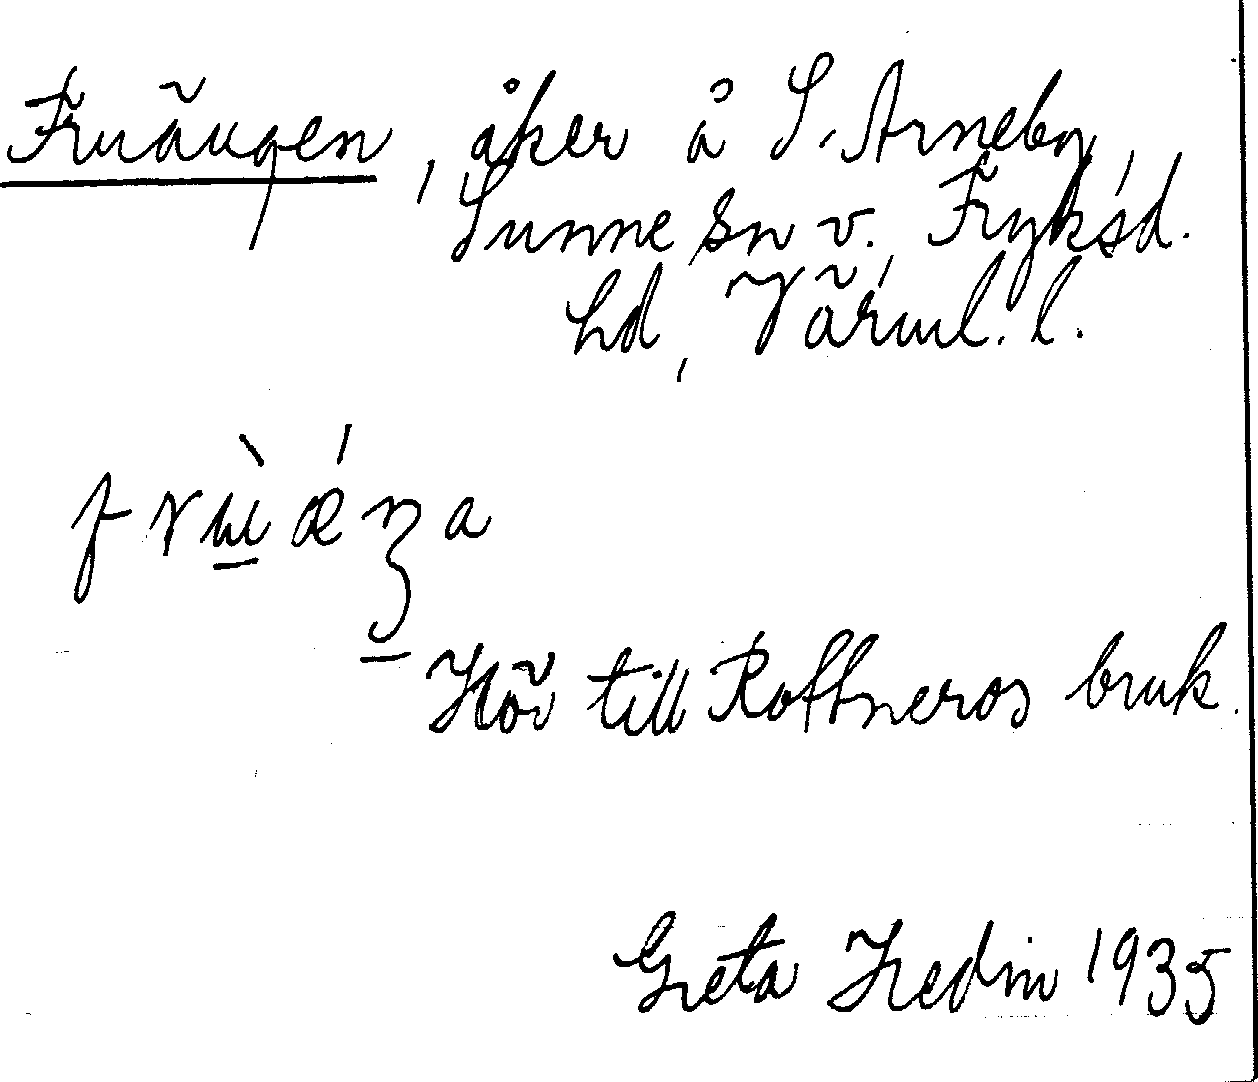 Fruängen, åker å S. Arneby,
Sunne sn v. Fryksd.
hd, Värml. l.
Hör till Rottneros bruk.
Greta Hedin 1935